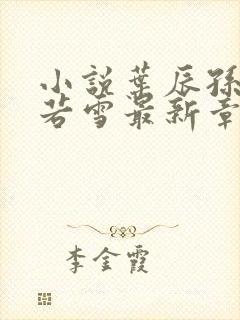 小説葉辰孫
若雪最新章
李金霞